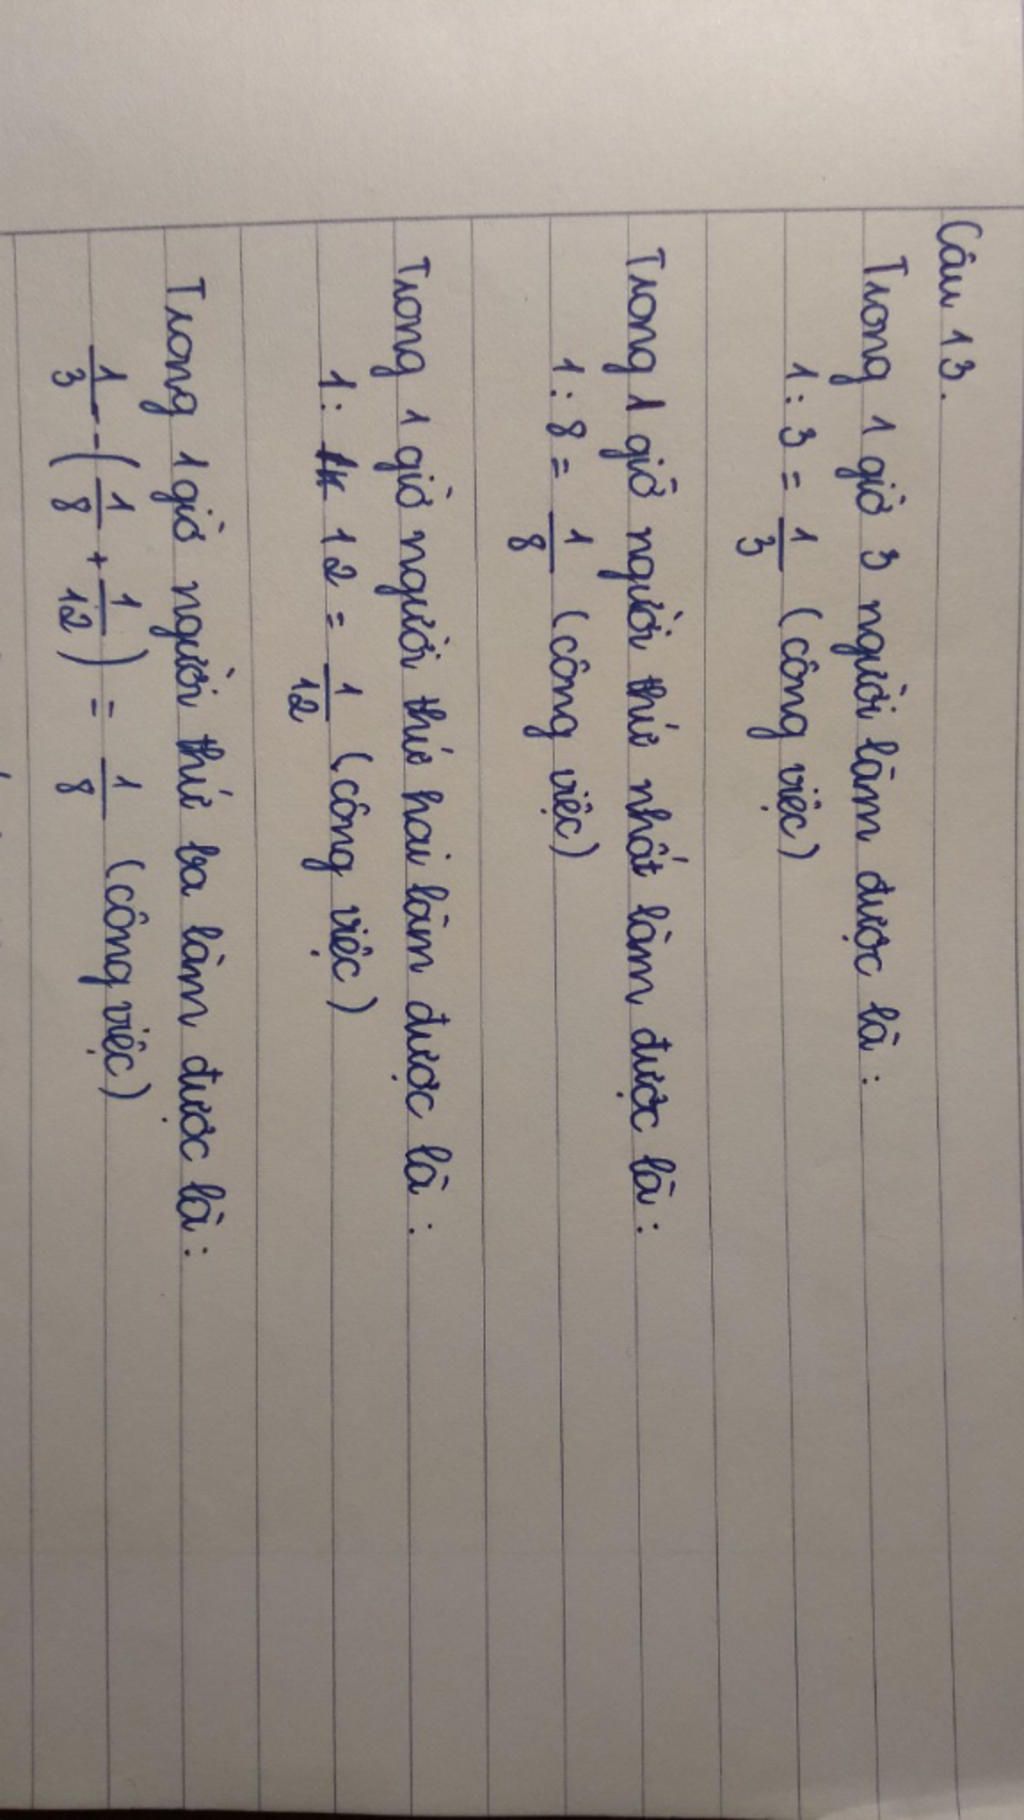 Câu 13.
Trong 1 giờ 3 người làm được là :
1 : 3 = 1/3 (công việc)
Trong 1 giờ người thứ nhất làm được là :
1 : 8 = 1/8 (công việc)
Trong 1 giờ người thứ hai làm được là :
1 : 12 = 1/12 (công việc)
Trong 1 giờ người thứ ba làm được là :
1/3 - (1/8 + 1/12) = 1/8 (công việc)